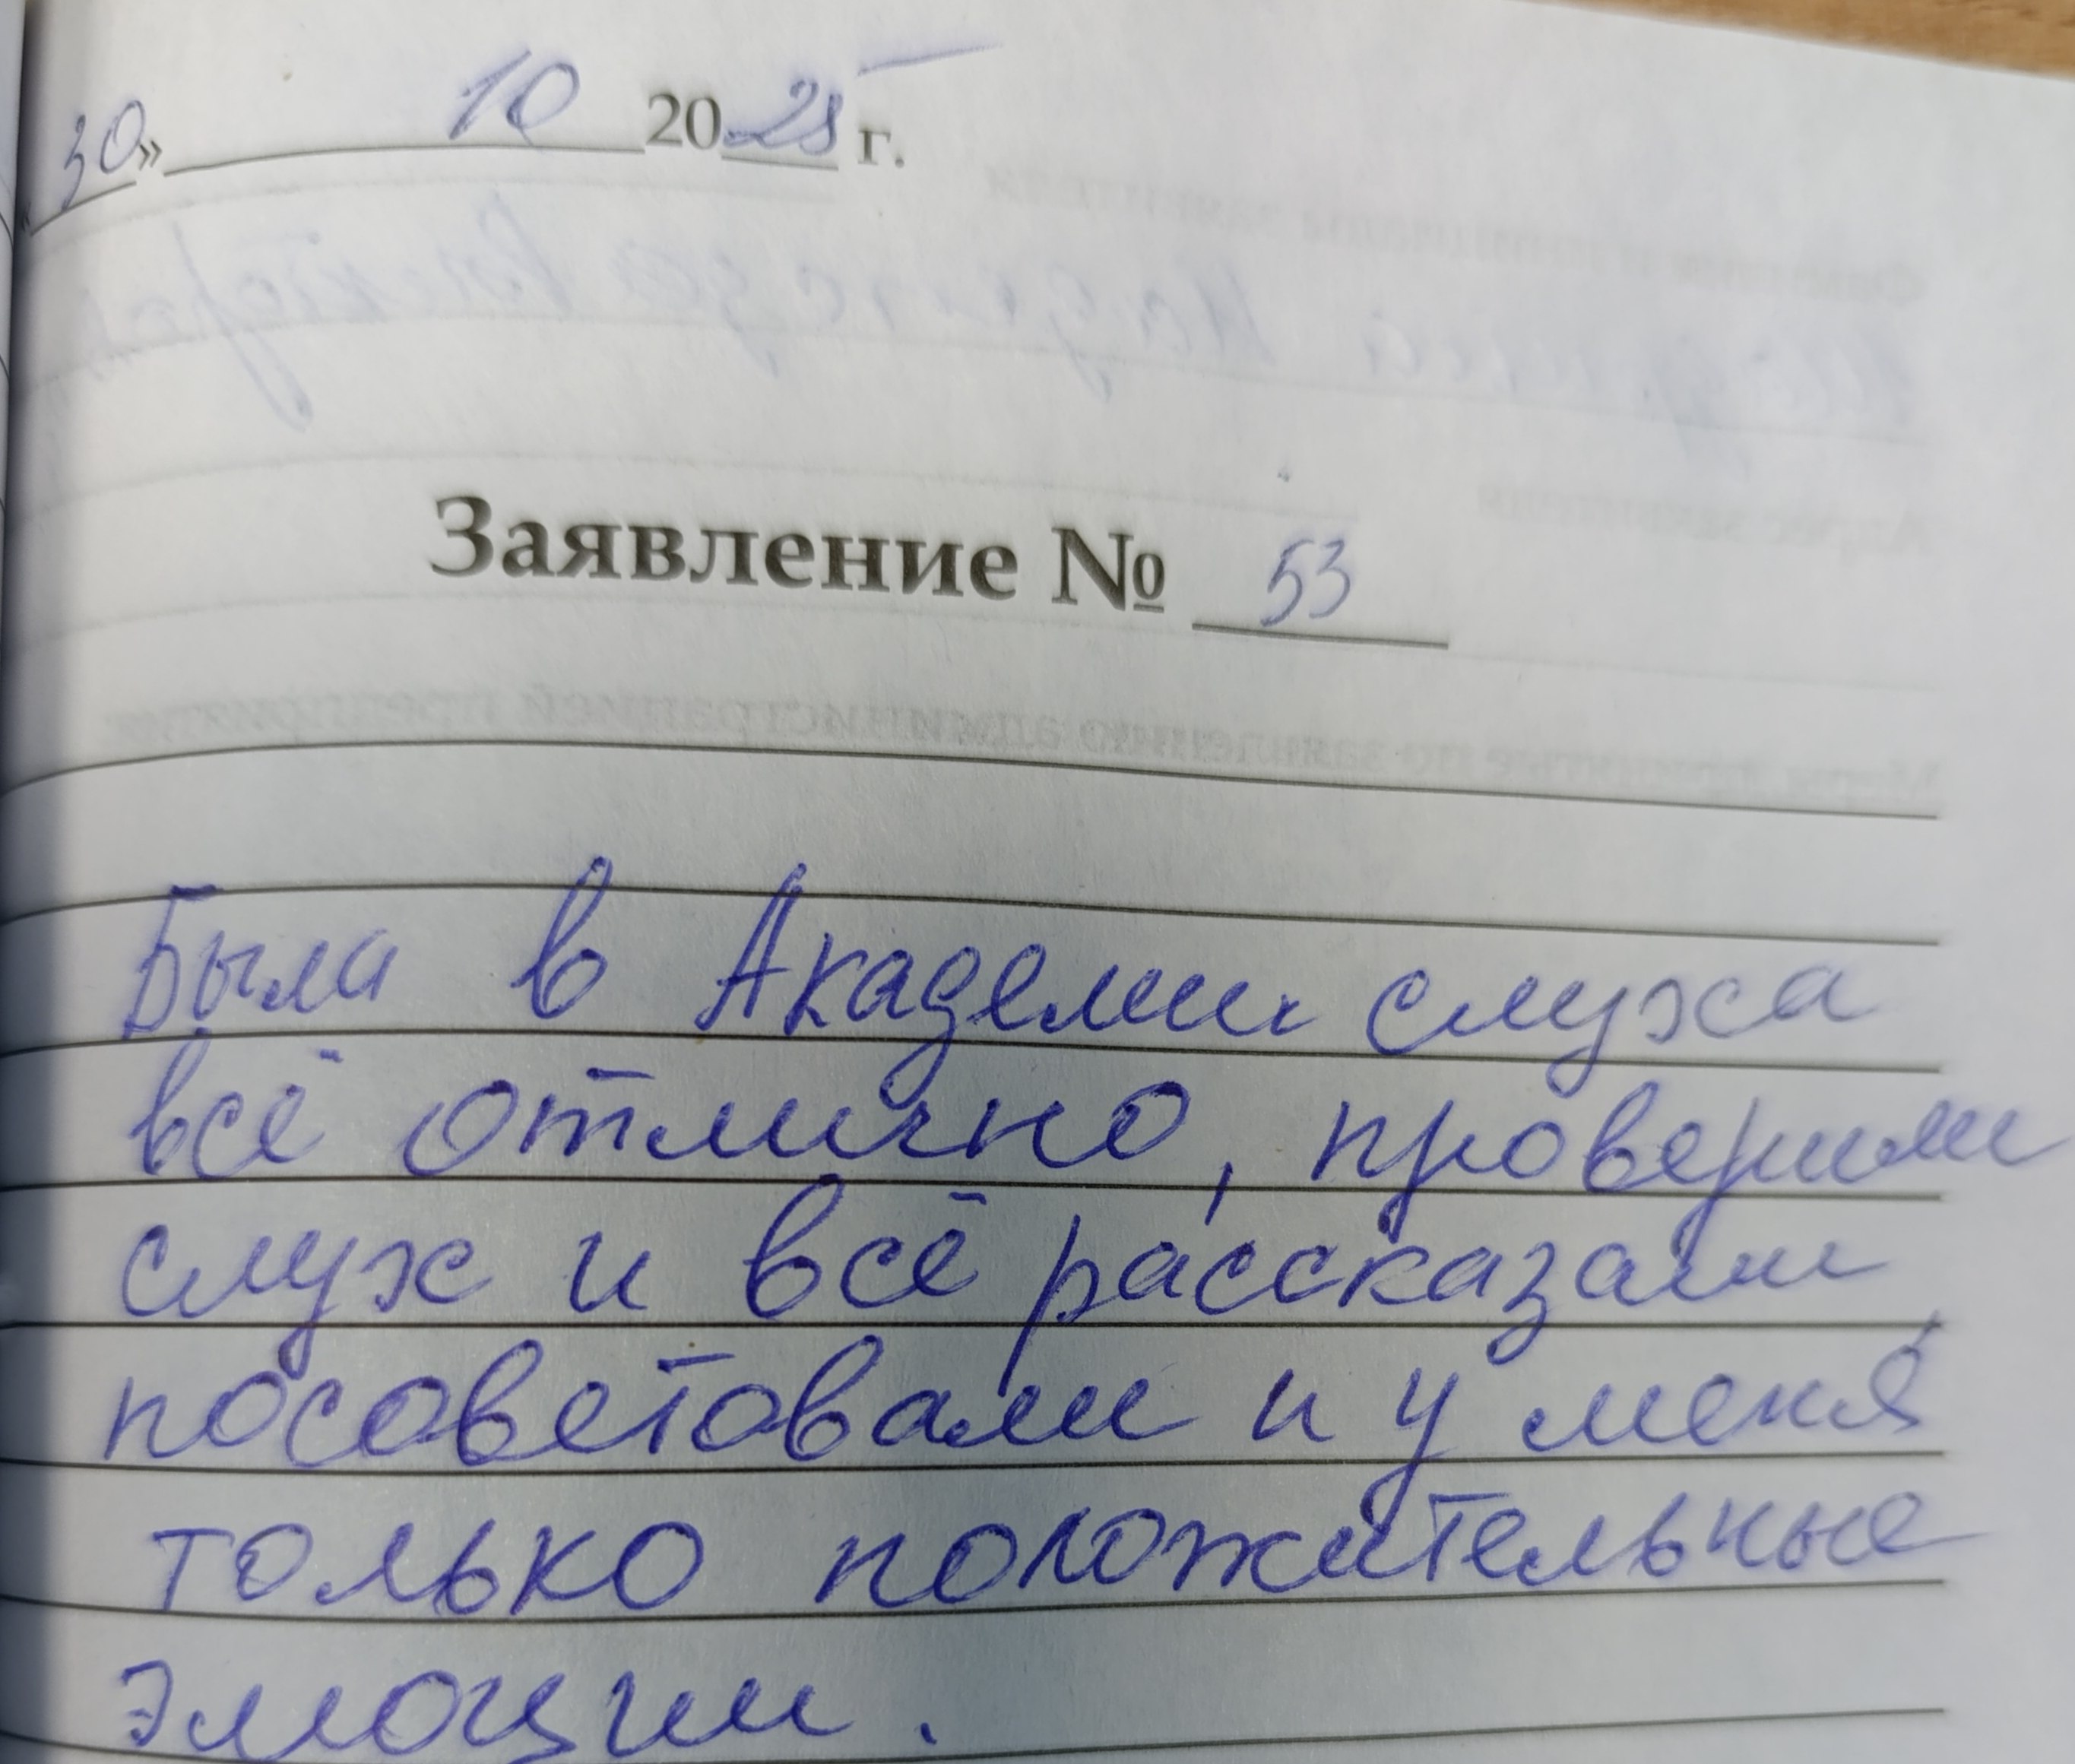 «30» 10 2025 г.
Заявление № 53
Была в Академии слуха
всё отлично, проверили
слух и всё рассказали,
посоветовали и у меня
только положительные
эмоции.